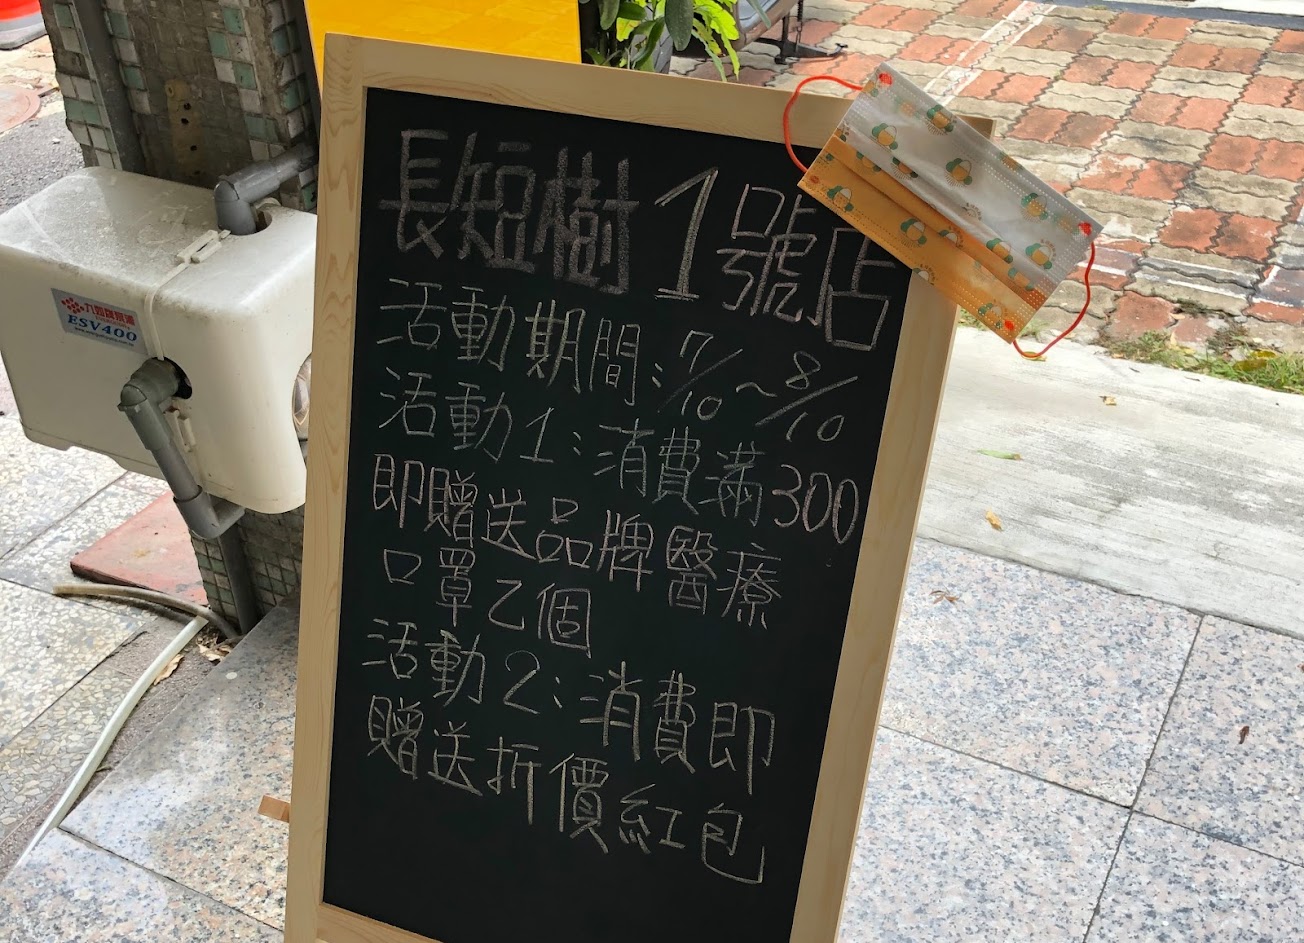 長短樹1號店
活動期間:7/10~8/10
活動1:消費滿300
即贈送品牌醫療
口罩乙個
活動2:消費即
贈送折價紅包
ESV400